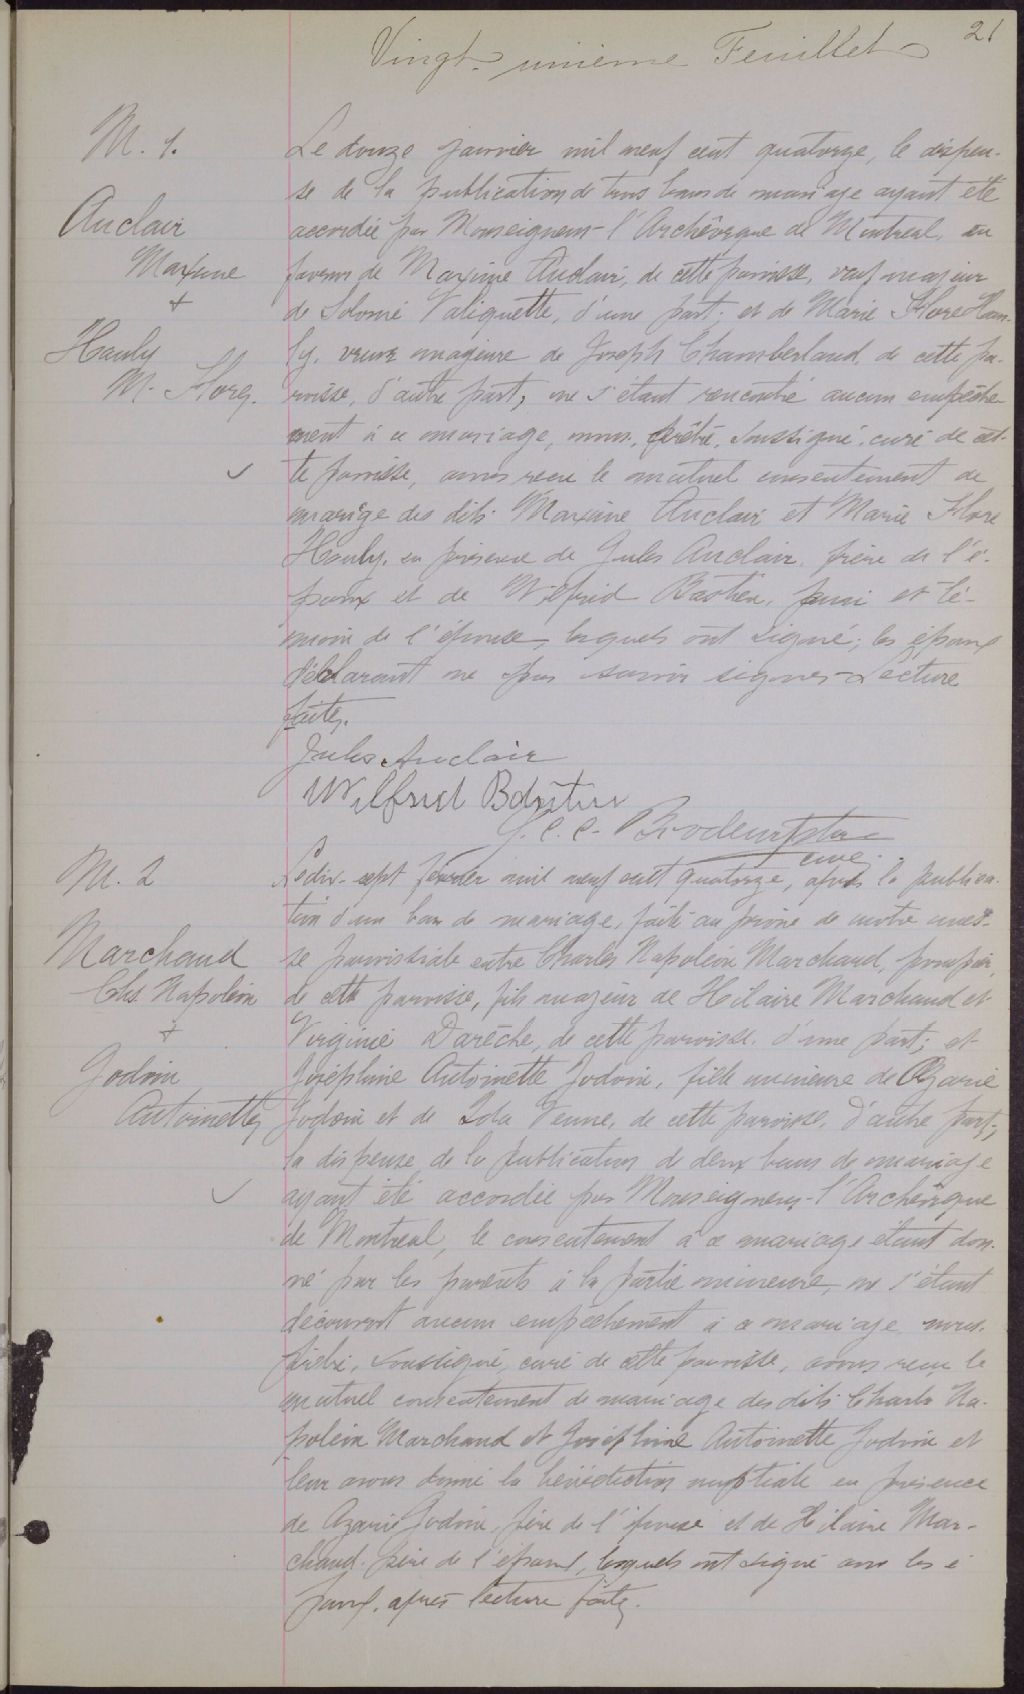 21
Vingt-unième Feuillet
M. 1.
Auclair
Maxime
+
Hanly
M. Flore.
Le douze janvier mil neuf cent quatorze, la dispen-
se de la publication de trois bans de mariage ayant été
accordée par Monseigneur l'Archevêque de Montréal, en
faveur de Maxime Auclair, de cette paroisse, veuf majeur
de Salomé Valiquette, d'une part; et de Marie Flore Han-
ly, veuve majeure de Joseph Chamberland, de cette pa-
roisse, d'autre part; ne s'étant rencontré aucun empêche-
ment à ce mariage, nous, prêtre, soussigné, curé de cet-
te paroisse, avons reçu le mutuel consentement de
mariage des dits Maxime Auclair et Marie Flore
Hanly, en présence de Jules Auclair, frère de l'é-
poux et de Wilfrid Bastien, ami et té-
moin de l'épouse, lesquels ont signé; les époux
déclarant ne pas savoir signer. Lecture
faite.
Jules Auclair
Wilfrid
J. C. C.
curé.
M. 2
Marchand
Chs. Napoléon
+
Jodoin
Antoinette
Le dix-sept février mil neuf cent quatorze, après la publica-
tion d'un ban de mariage, faite au prône de notre mes-
se paroissiale entre Charles Napoléon Marchand, pompier,
de cette paroisse, fils majeur de Hilaire Marchand et
Virginie Darèche, de cette paroisse, d'une part; et
Joséphine Antoinette Jodoin, fille mineure de Azarie
Jodoin et de Ida Venne, de cette paroisse, d'autre part;
la dispense de la publication de deux bans de mariage
ayant été accordée par Monseigneur l'Archevêque
de Montréal, le consentement à ce mariage étant don-
né par les parents à la partie mineure, ne s'étant
découvert aucun empêchement à ce mariage, nous,
prêtre, soussigné, curé de cette paroisse, avons reçu le
mutuel consentement de mariage des dits Charles Na-
poléon Marchand et Joséphine Antoinette Jodoin et
leur avons donné la bénédiction nuptiale en présence
de Azarie Jodoin, père de l'épouse et de Hilaire Mar-
chand, père de l'époux, lesquels ont signé avec les é-
poux, après lecture faite.